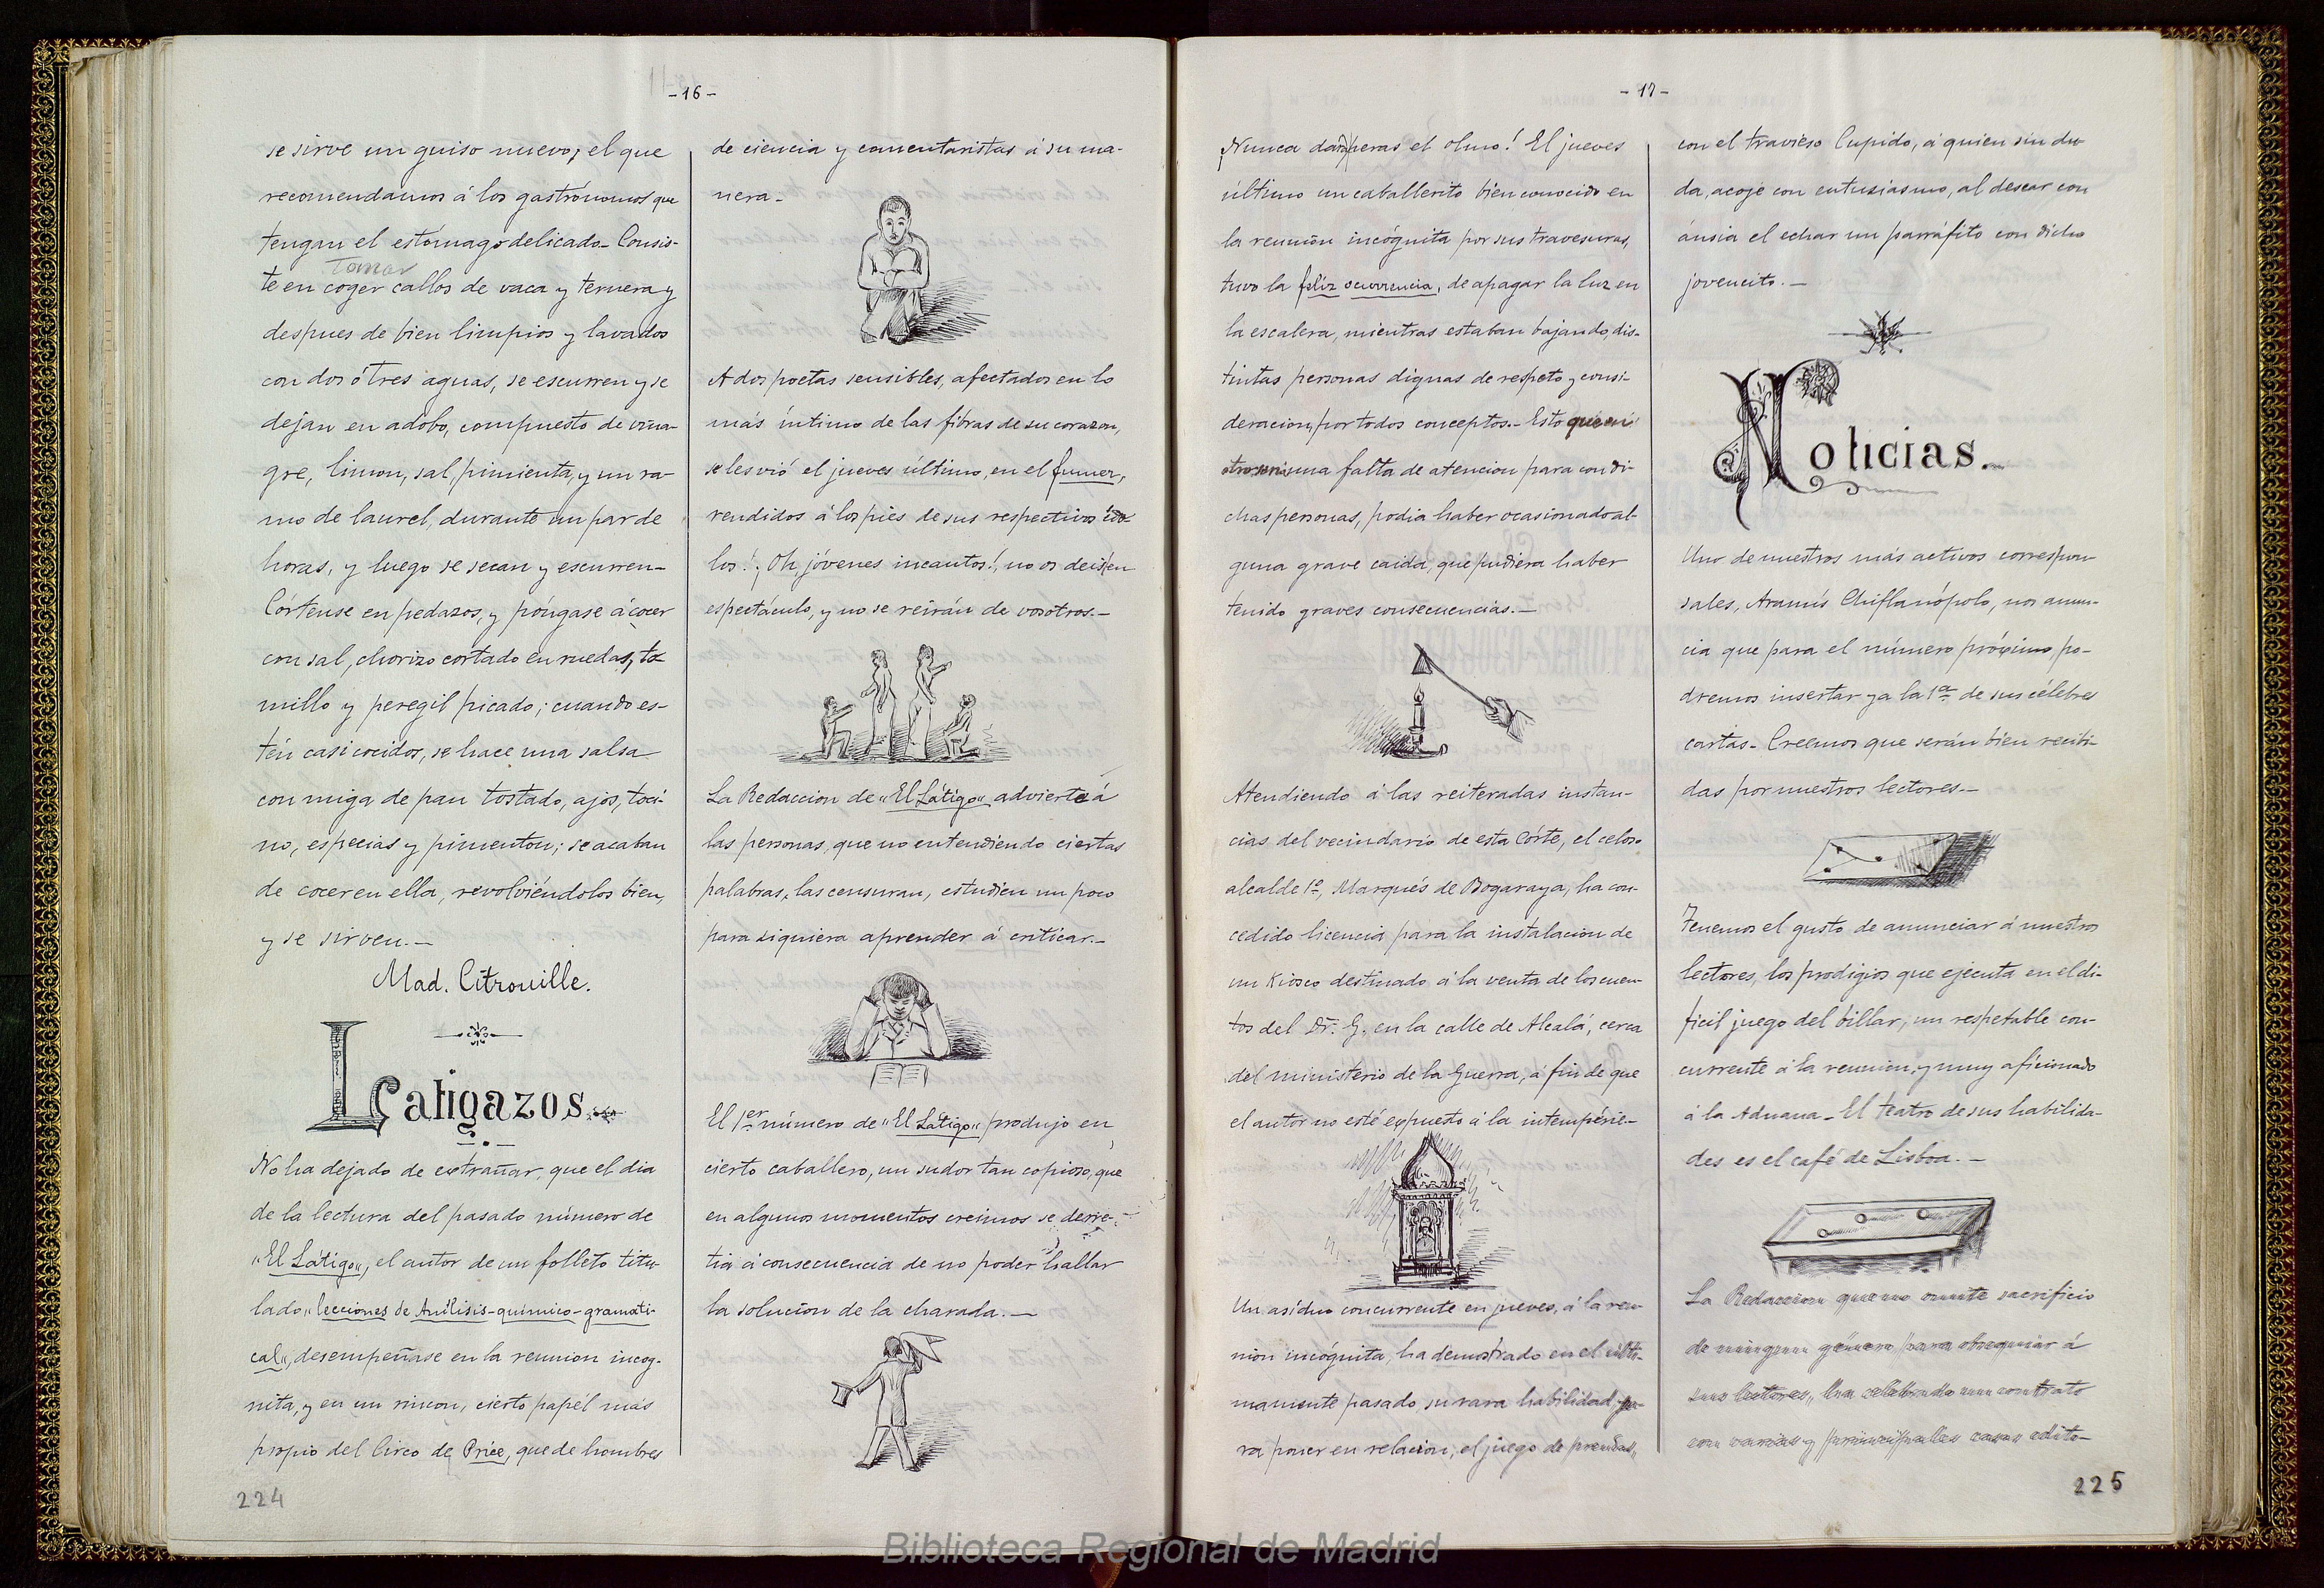 -16-
se sirve un guiso nuevo, el que
recomendamos á los gastrónomos que
tengan el estómago delicado_ Consis-
tomar
te en coger callos de vaca y ternera y
despues de bien limpios y lavados
con dos ó tres aguas, se escurren y se
dejan en adobo, compuesto de vina-
gre, limon, sal, pimienta, y un ra-
mo de laurel, durante un par de
horas, y luego se secan y escurren_
Córtense en pedazos, y póngase á cocer
con sal, chorizo cortado en ruedas, to-
millo y peregil picado; cuando es-
tén casi cocidos, se hace una salsa
con miga de pan tostado, ajos, toci-
no, especias y pimenton; se acaban
de cocer en ella, revolviéndolos bien,
y se sirven._
Mad. Citrouille.
Latigazos.
No ha dejado de extrañar, que el dia
de la lectura del pasado número de
"El Látigo", el autor de un folleto titu-
lado "lecciones de Análisis-quimico-gramati-
cal", desempeñase en la reunion incog-
nita, y en un rincon, cierto papél más
propio del Circo de Price, que de hombres
224
de ciencia y comentaristas á su ma-
nera_
A dos poetas sensibles, afectados en lo
más íntimo de las fibras de su corazon,
se les vió el jueves último, en el fumer,
rendidos á los piés de sus respectivos ído-
los! ¡Oh, jóvenes incautos!, no os deis en
espectáculo, y no se reirán de vosotros._
La Redaccion de "El Látigo" advierte á
las personas, que no entendiendo ciertas
palabras, las censuran, estudien un poco
para siquiera aprender á criticar._
El 1er número de "El Látigo" produjo en
cierto caballero, un sudor tan copioso, que
en algunos momentos creimos se derre-
tia á consecuencia de no poder hallar
la solucion de la charada._
-17-
¡Nunca dará peras el olmo! El jueves
último un caballerito bien conocido en
la reunion incógnita por sus travesuras,
tuvo la feliz ocurrencia, de apagar la luz en
la escalera, mientras estaban bajando, dis-
tintas personas dignas de respeto y consi-
deracion, por todos conceptos._ Esto que en
una falta de atencion para con di-
chas personas, podia haber ocasionado al-
guna grave caida, que pudiera haber
tenido graves consecuencias._
Atendiendo á las reiteradas instan-
cias del vecindario de esta Córte, el celoso
alcalde 1º, Marqués de Bogaraya, ha con-
cedido licencia para la instalacion de
un Kiosco destinado á la venta de los cuen-
tos del Dr. G. en la calle de Alcalá, cerca
del ministerio de la Guerra, á fin de que
el autor no esté expuesto á la intempérie_
Un asíduo concurrente en jueves, á la reu-
nion incógnita, ha demostrado en el últi-
mamente pasado, su rara habilidad pa-
ra poner en relacion, el juego de prendas,
con el travieso Cupido, á quien sin du-
da, acoje con entusiasmo, al desear con
ánsia el echar un parráfito con dicho
jovencito._
Noticias.
Uno de nuestros más activos correspon-
sales, Aramís Chiflanópolo, nos anun-
cia que para el número próximo, po-
dremos insertar ya la 1ª de sus célebres
cartas_ Creemos que serán bien recibi-
das por nuestros lectores._
Tenemos el gusto de anunciar á nuestros
lectores, los prodigios que ejecuta en el di-
ficil juego del billar, un respetable con-
currente á la reunion, y muy aficionado
á la Aduana_ El teatro de sus habilida-
des es el café de Lisboa._
La Redaccion que no omite sacrificio
de ningun género para obsequiar á
sus lectores, ha celebrado un contrato
con varias y principales casas edito-
225
Biblioteca Regional de Madrid